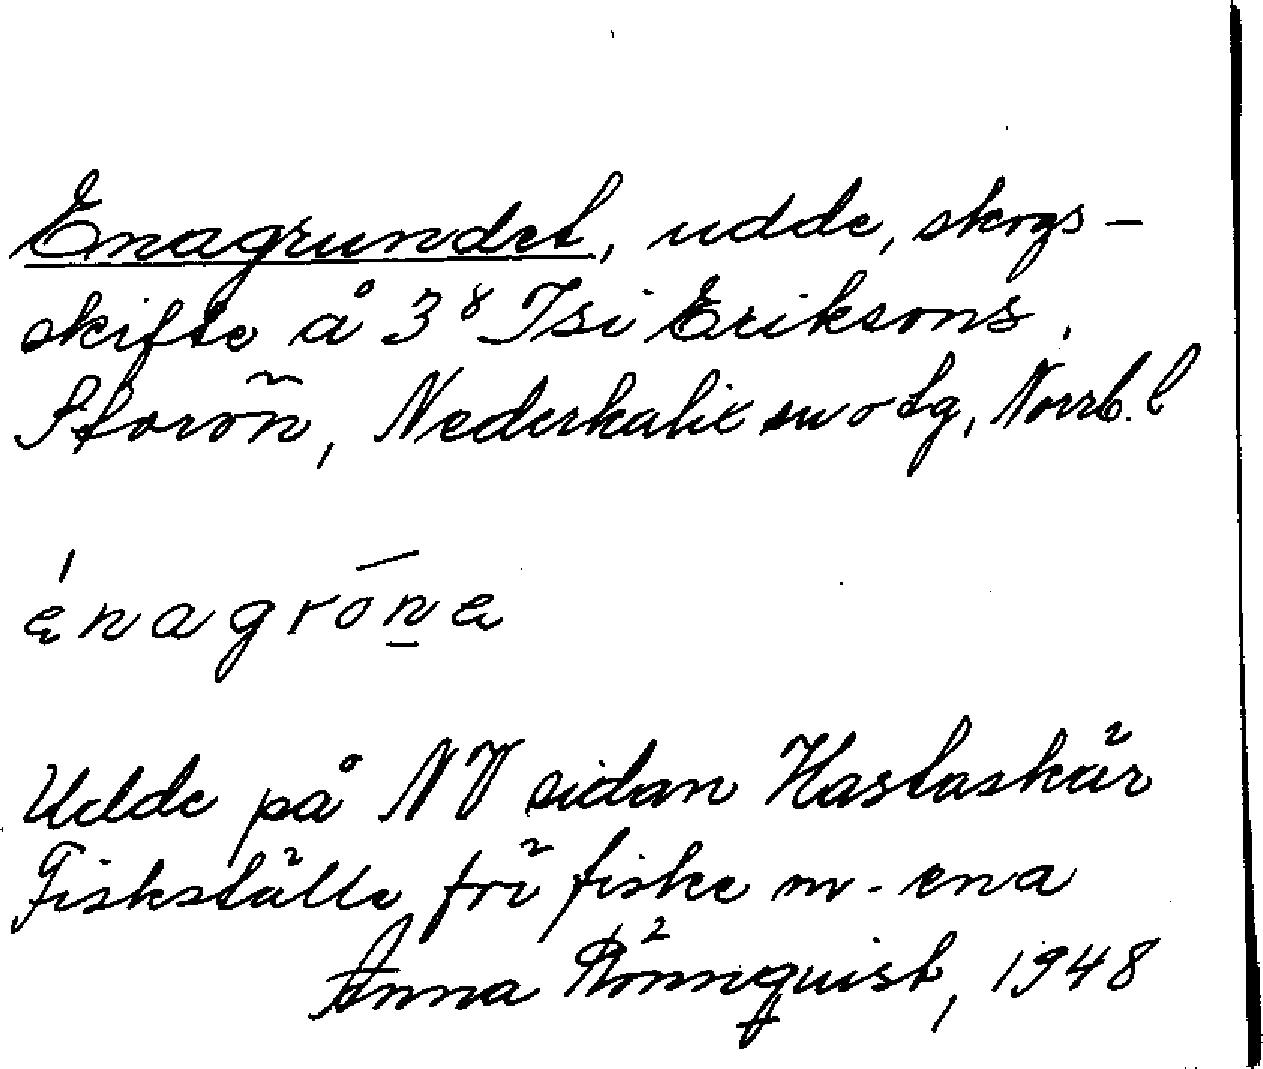 Enagrundet, udde, skogs-
skifte å 3⁸ Isi Eriksons.
Storön, Nederkalix sn o tg, Norrb. l
énagróna
Udde på NV sidan Hastaskär
Fiskställe för fiske m- ena
Anna Rönnquist, 1948